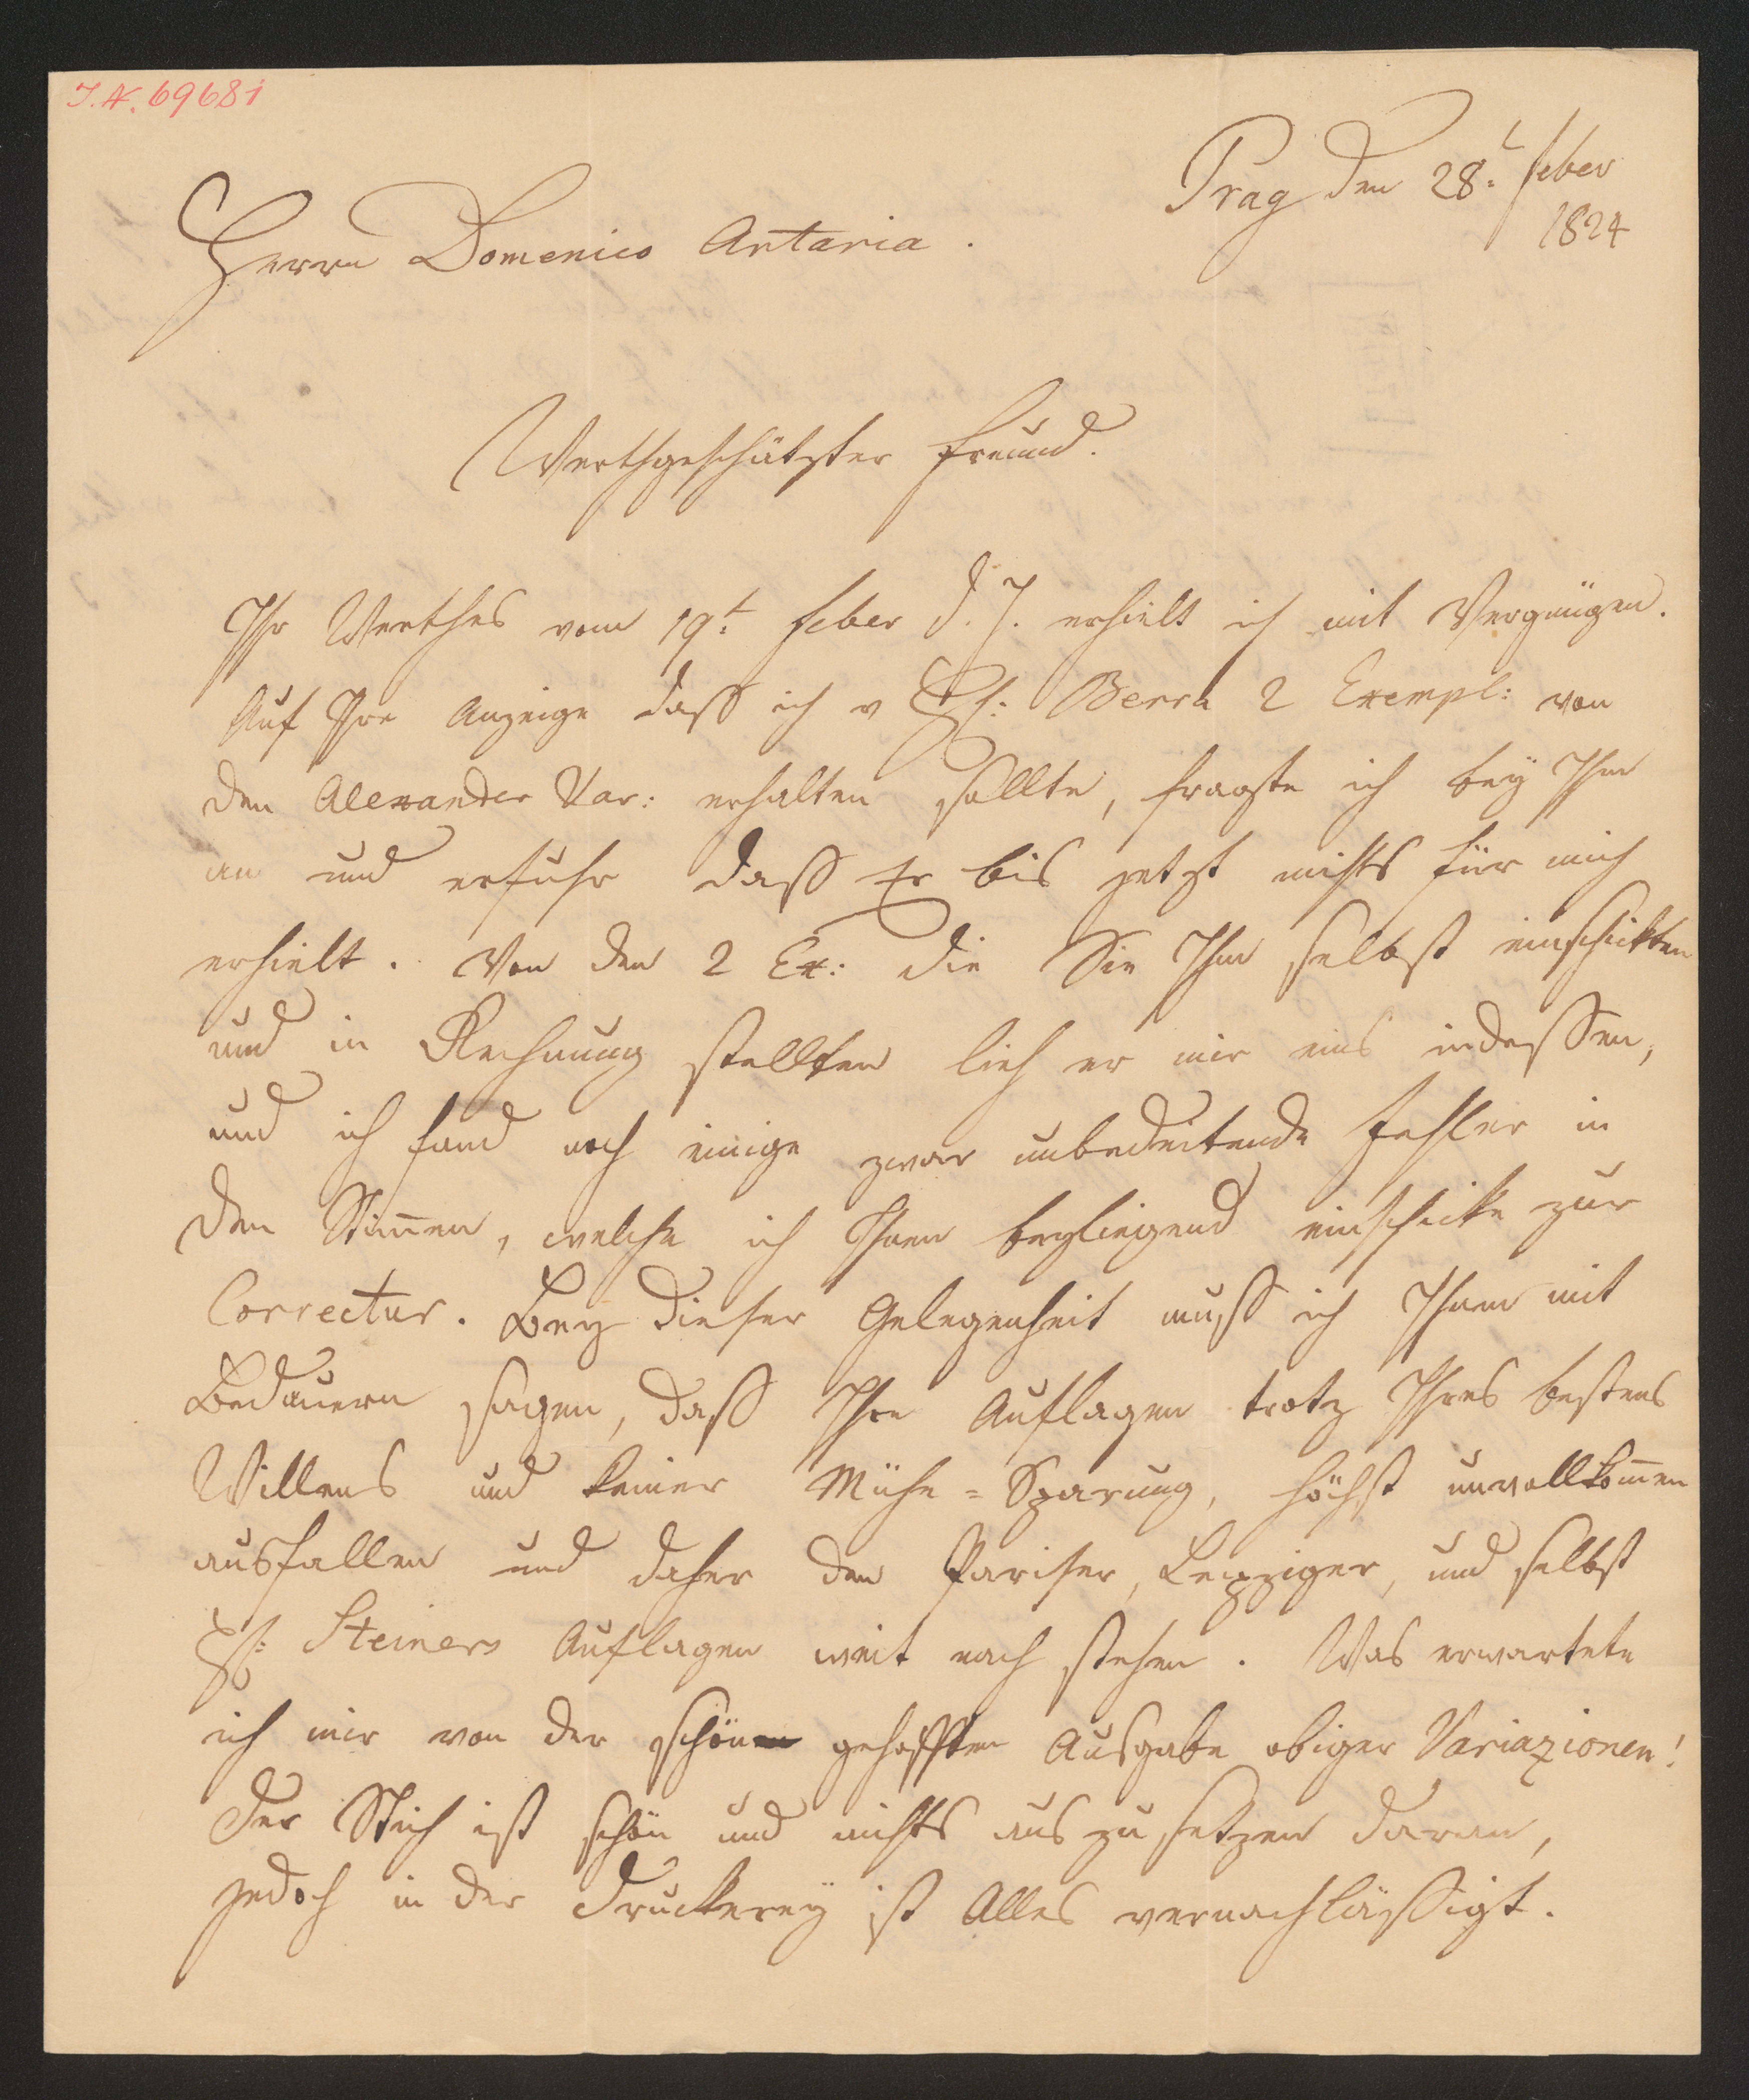 I. N. 69681
Prag den 28t. feber
1824
Herrn Domenico Artaria.
Werthgeschätzter Freund.
Ihr Werthes vom 19t. feber d. J. erhielt ich mit Vergnügen.
Auf Ihre Anzeige daß ich v H: Berra 2 Exempl: von
den Alexander Var: erhalten sollte, fragte ich bey Ihm
an und erfuhr daß Er bis jetzt nichts für mich
erhielt. Von den 2 Ex: die Sie Ihm selbst einschickten
und in Rechnung stellten lieh er mir eins indessen,
und ich fand noch einige zwar unbedeutende Fehler in
den Stim̅en, welche ich Ihnen beyliegend einschicke zur
Correctur. Bey dieser Gelegenheit muß ich Ihnen mit
Bedauern sagen, daß Ihre Auflagen trotz Ihres bestens
Willens und keiner Mühe=Sparung, höchst unvollkom̅en
ausfallen und daher den Pariser, Leipziger, und selbst
H: Steiners Auflagen weit nach stehen. Was erwartete
ich mir von der schön gehofften Ausgabe obiger Variazionen!
Der Stich ist schön und nichts aus zu setzen daran,
jedoch in der Druckerey ist Alles vernachläßigt.